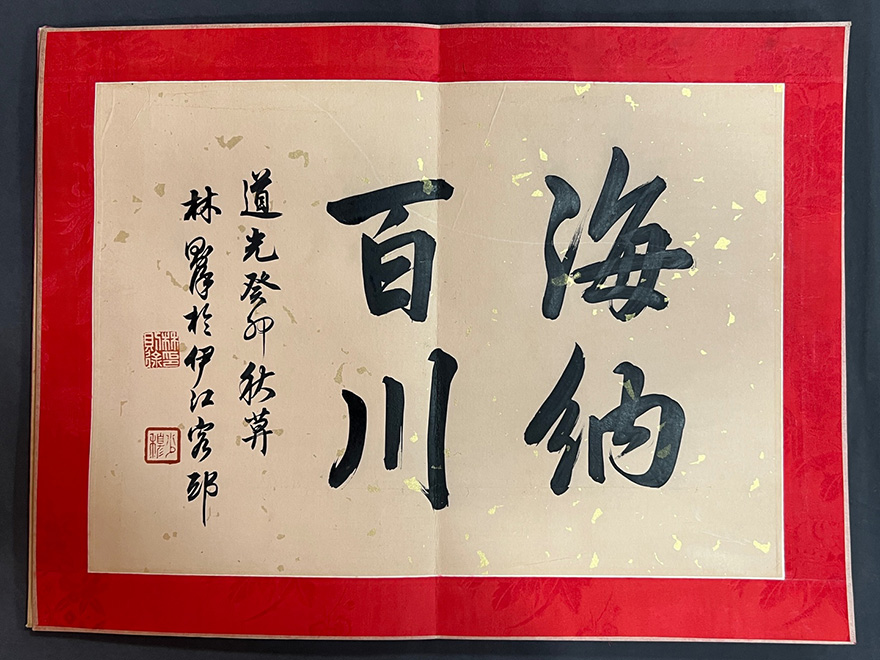 海納
百川
道光癸卯秋
林於伊江客邸
林印則徐
少穆